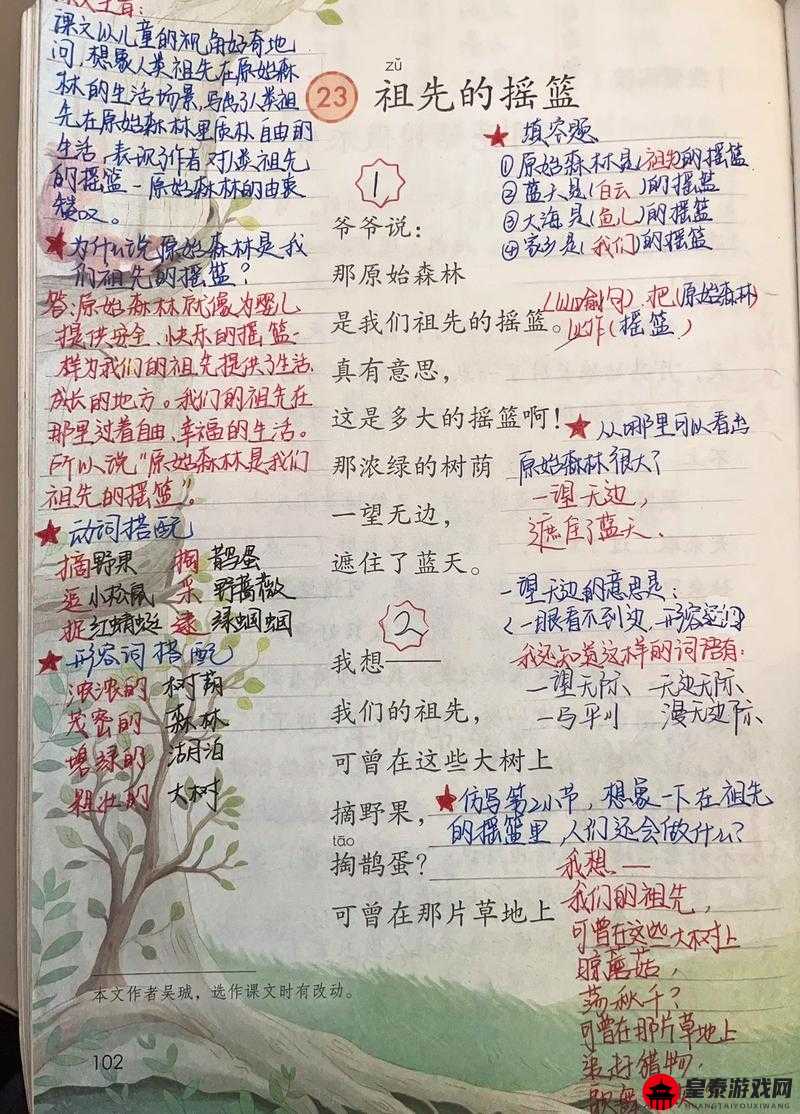 课文以儿童的视角好奇地
问,想象人类祖先在原始森
林的生活场景,写出了人类祖
先在原始森林里质朴自由的
生活,表现了作者对人类祖先
的摇篮-原始森林的由衷
赞叹。
★为什么说原始森林是我
们祖先的摇篮?
答:原始森林就像为婴儿
提供安全、快乐的摇篮一
样为我们的祖先提供了生活、
成长的地方。我们的祖先在
那里过着自由、幸福的生活。
所以说“原始森林是我们
祖先的摇篮”。
★动词搭配
摘野果 掏鹊蛋
逗小松鼠 采野蔷薇
捉红蜻蜓 逮绿蝈蝈
★形容词搭配
浓浓的 树荫
茂密的 森林
碧绿的 湖泊
粗壮的 大树
zǔ
23 祖先的摇篮
1
爷爷说:
那原始森林
是我们祖先的摇篮。
真有意思,
这是多大的摇篮啊!
那浓绿的树荫
一望无边,
遮住了蓝天。
2
我想——
我们的祖先,
可曾在这些大树上
摘野果,
tāo
掏鹊蛋?
可曾在那片草地上
★填空题
①原始森林是(祖先)的摇篮
②蓝天是(白云)的摇篮
③大海是(鱼儿)的摇篮
④家乡是(我们)的摇篮
(比喻句)把(原始森林)
比作(摇篮)
★从哪里可以看出
原始森林很大?
一望无边,
遮住了蓝天、
一望无边的意思是:
(一眼看不到边,形容宽阔)
我还知道这样的词语有:
一望无际、 无边无际、
一马平川 漫无边际、
★仿写第2小节,想象一下在祖先
的摇篮里,人们还会做什么?
我想—
我们的祖先,
可曾在这些大树上
晾蘑菇,
荡秋千?
可曾在那片草地上
追赶猎物,
本文作者吴珹,选作课文时有改动。
102
皇泰游戏网
HUANGTAIYOUXIWANG